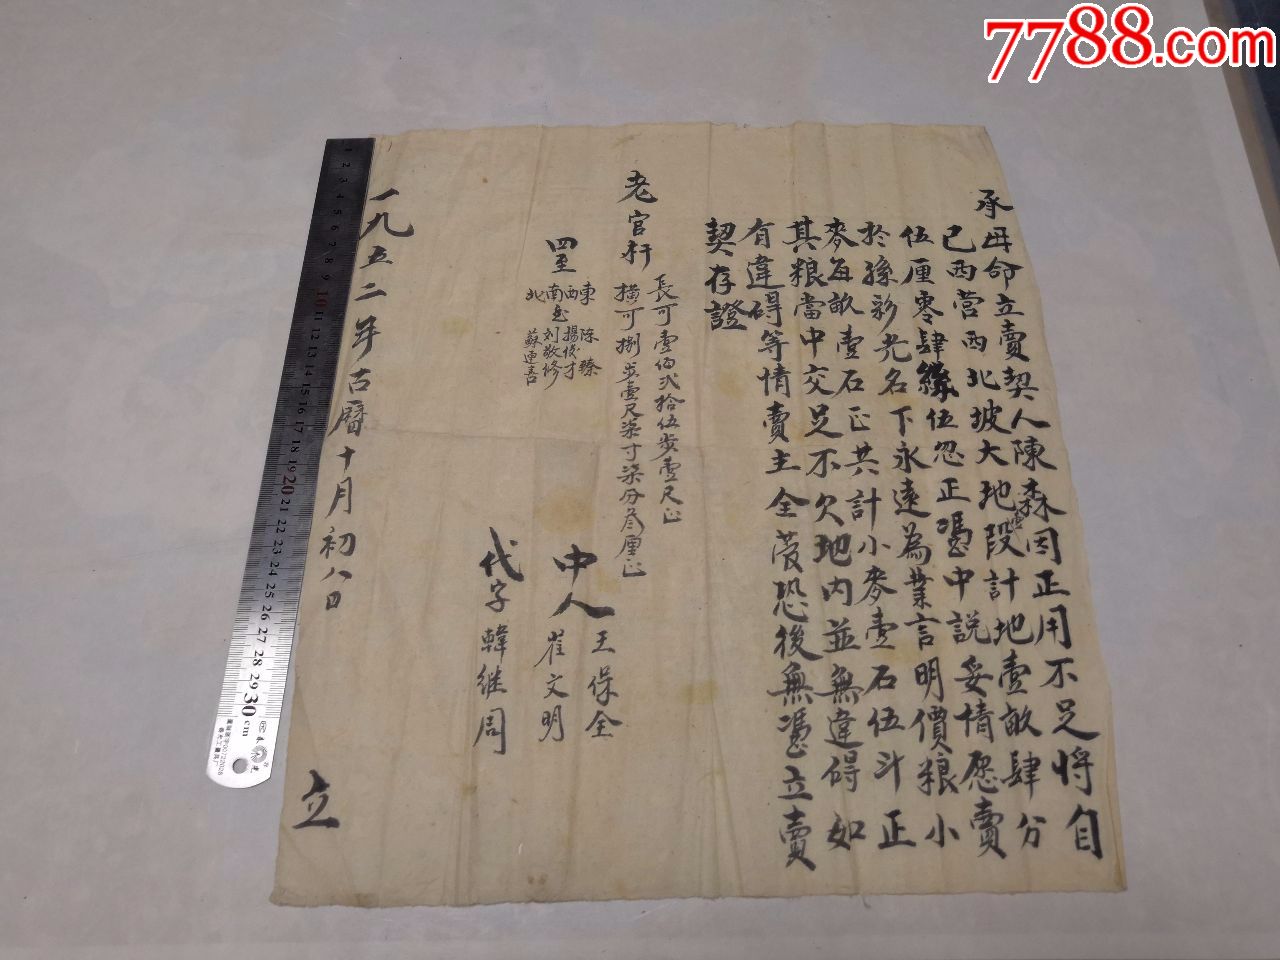 7788.com
承母命立賣契人陳森因正用不足將自
己西营西北坡大地段計地壹畝肆分
伍厘零肆絲伍忽正憑中説妥情愿賣
於孫彩光名下永遠為業言明價粮小
麥每畝壹石正共計小麥壹石伍斗正
其粮當中交足不欠地内並無違碍如
有違碍等情賣主全管恐後無憑立賣
契存證
老官行
長可壹佰弍拾伍步壹尺正
横可捌步壹尺柒寸柒分叁厘正
四至
東 陈臻
西 楊俊才
南至 刘敬修
北 蘇連喜
中人 王保全
崔文明
代字 韓继周
一九五二年古曆十月初八日 立